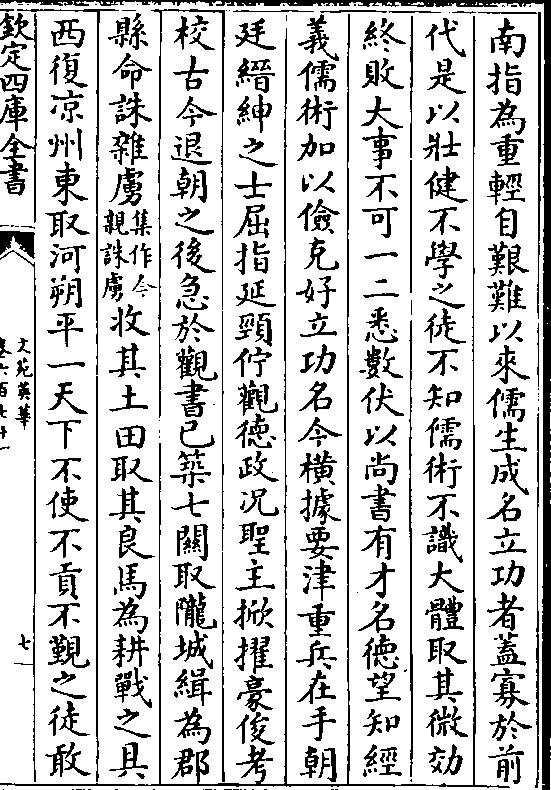 南指為重輕自艱難以來儒生成名立功者蓋寡於前
代是以壯健不學之徒不知儒術不識大體取其微効
終敗大事不可一二悉數伏以尚書有才名德望知經
義儒術加以儉克好立功名今橫據要津重兵在手朝
廷縉紳之士屈指延頸佇觀德政况聖主掀擢豪俊考
校古今退朝之後急於觀書已築七關取隴城緝為郡
縣命誅雜虜集作今親誅虜收其土田取其良馬為耕戰之具
西復凉州東取河朔平一天下不使不貢不覲之徒敢
欽定四庫全書
文苑英華
卷六百七十一
七